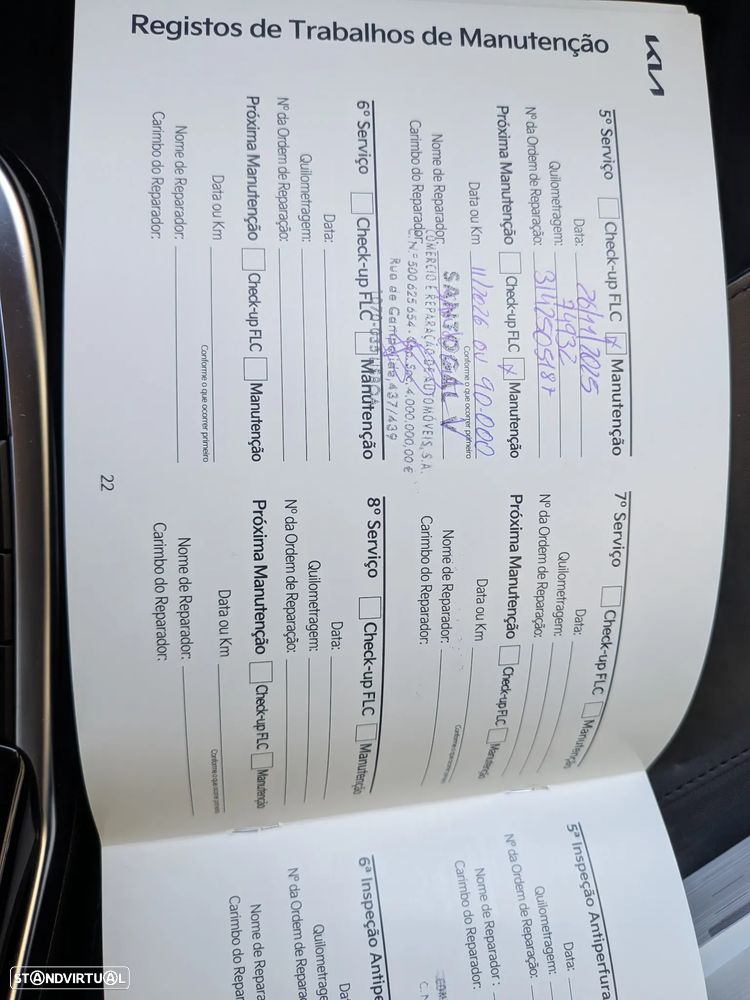 Registos de Trabalhos de Manutenção
KIA
5º Serviço Check-up FLC x Manutenção
Data: 26/11/2025
Quilometragem: 74932
Nº da Ordem de Reparação: 3142505187
Próxima Manutenção Check-up FLC x Manutenção
Data ou Km 11/2026 ou 90.000
Conforme o que ocorrer primeiro
Nome de Reparador:
Carimbo do Reparador:
COMÉRCIO E REPARAÇÃO DE AUTOMÓVEIS, S.A.
C. N.º 500 625 654 - Cap. Soc. 4.000.000,00 €
Rua de Campolide, 437/439
6º Serviço Check-up FLC Manutenção
Data:
Quilometragem:
Nº da Ordem de Reparação:
Próxima Manutenção Check-up FLC Manutenção
Data ou Km
Conforme o que ocorrer primeiro
Nome de Reparador:
Carimbo do Reparador:
7º Serviço Check-up FLC Manutenção
Data:
Quilometragem:
Nº da Ordem de Reparação:
Próxima Manutenção Check-up FLC Manutenção
Data ou Km
Conforme o que ocorrer primeiro
Nome de Reparador:
Carimbo do Reparador:
8º Serviço Check-up FLC Manutenção
Data:
Quilometragem:
Nº da Ordem de Reparação:
Próxima Manutenção Check-up FLC Manutenção
Data ou Km
Conforme o que ocorrer primeiro
Nome de Reparador:
Carimbo do Reparador:
22
5ª Inspeção Antiperfura
Data:
Quilometragem:
Nº da Ordem de Reparação:
Nome de Reparador:
Carimbo do Reparador:
6ª Inspeção Antipe
Dat
Quilometrage
Nº da Ordem de Reparaçã
Nome de Repara
Carimbo do Repar
STANDVIRTUAL